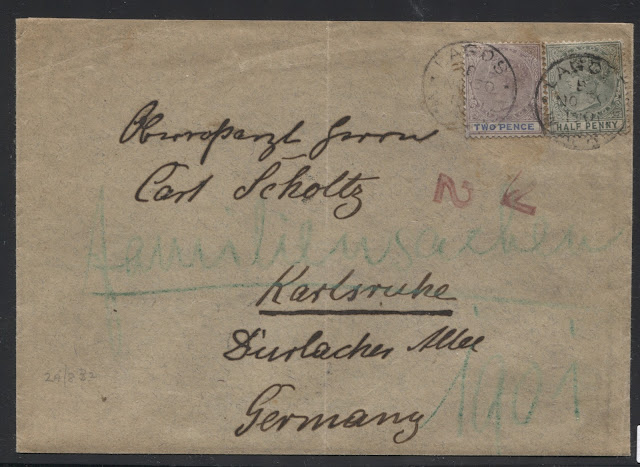 LAGOS
LAGOS
TWO PENCE
HALF PENNY
Oberroßarzt Herrn
Carl Scholtz
2
Familiensachen
Karlsruhe
Durlacher Allee
Germany